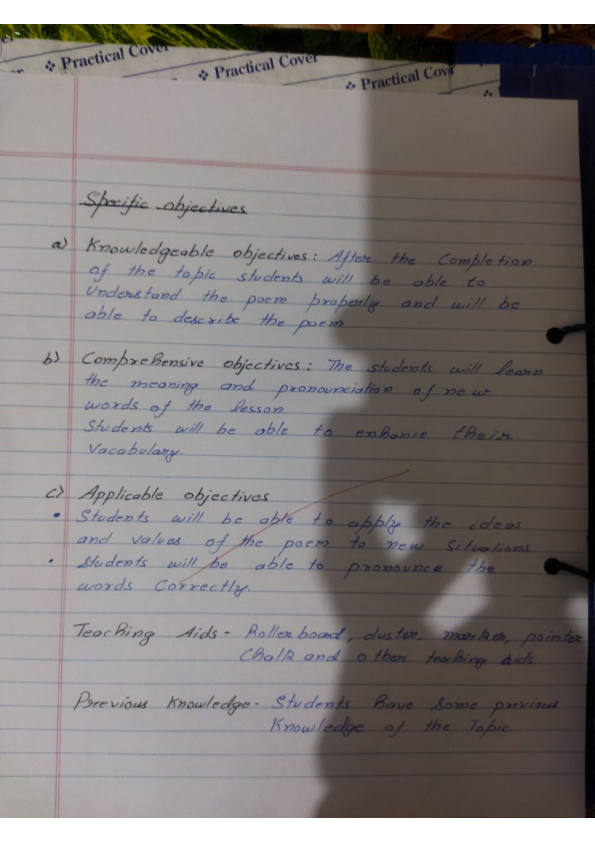 Practical Cover
Practical Cover
Practical Cover
Specific objectives
a) Knowledgeable objectives: After the Completion
of the topic students will be able to
Understand the poem properly and will be
able to describe the poem
b) Comprehensive objectives: The students will learn
the meaning and pronounciation of new
words of the lesson
Students will be able to enhance their
Vacabulary.
c) Applicable objectives
• Students will be able to apply the ideas
and values of the poem to new Situations
• Students will be able to pronounce the
words Correctly.
Teaching Aids - Roller board, duster, marker, pointer
Chalk and other teaching aids
Previous Knowledge - Students have some previous
Knowledge of the Topic.